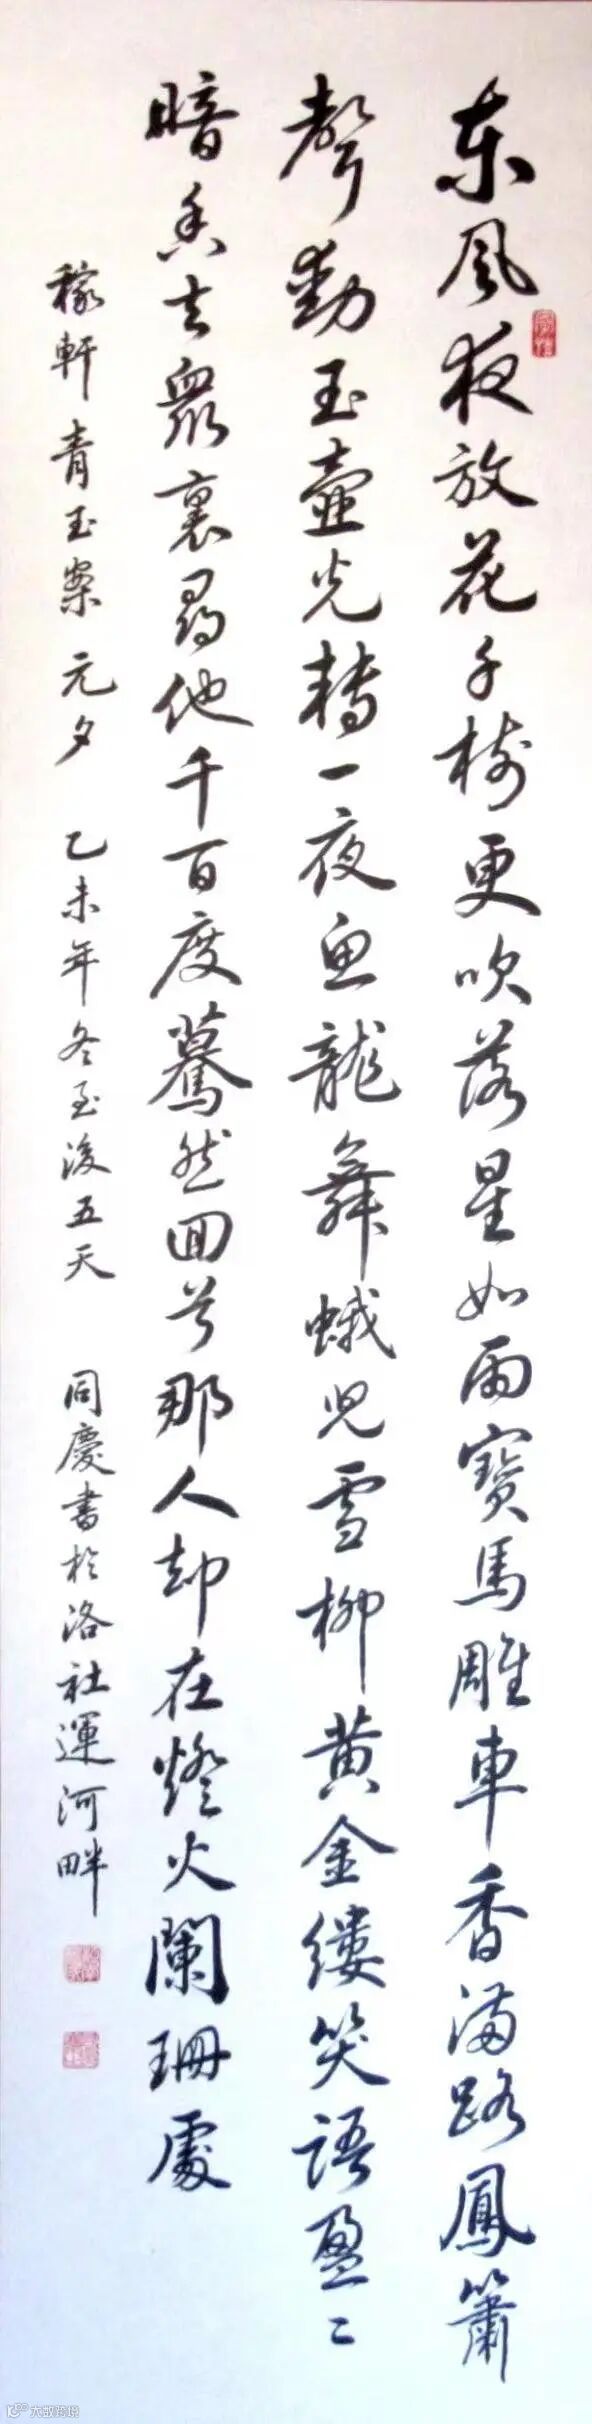 东风夜放花千树更吹落星如雨寶馬雕車香满路鳳簫
聲動玉壺光轉一夜魚龍舞蛾児雪柳黄金缕笑语盈〻
暗香去衆裏尋他千百度驀然回首那人却在燈火闌珊處
稼軒青玉案元夕 乙未年冬至後五天 同慶書於洛社運河畔
大数跨境